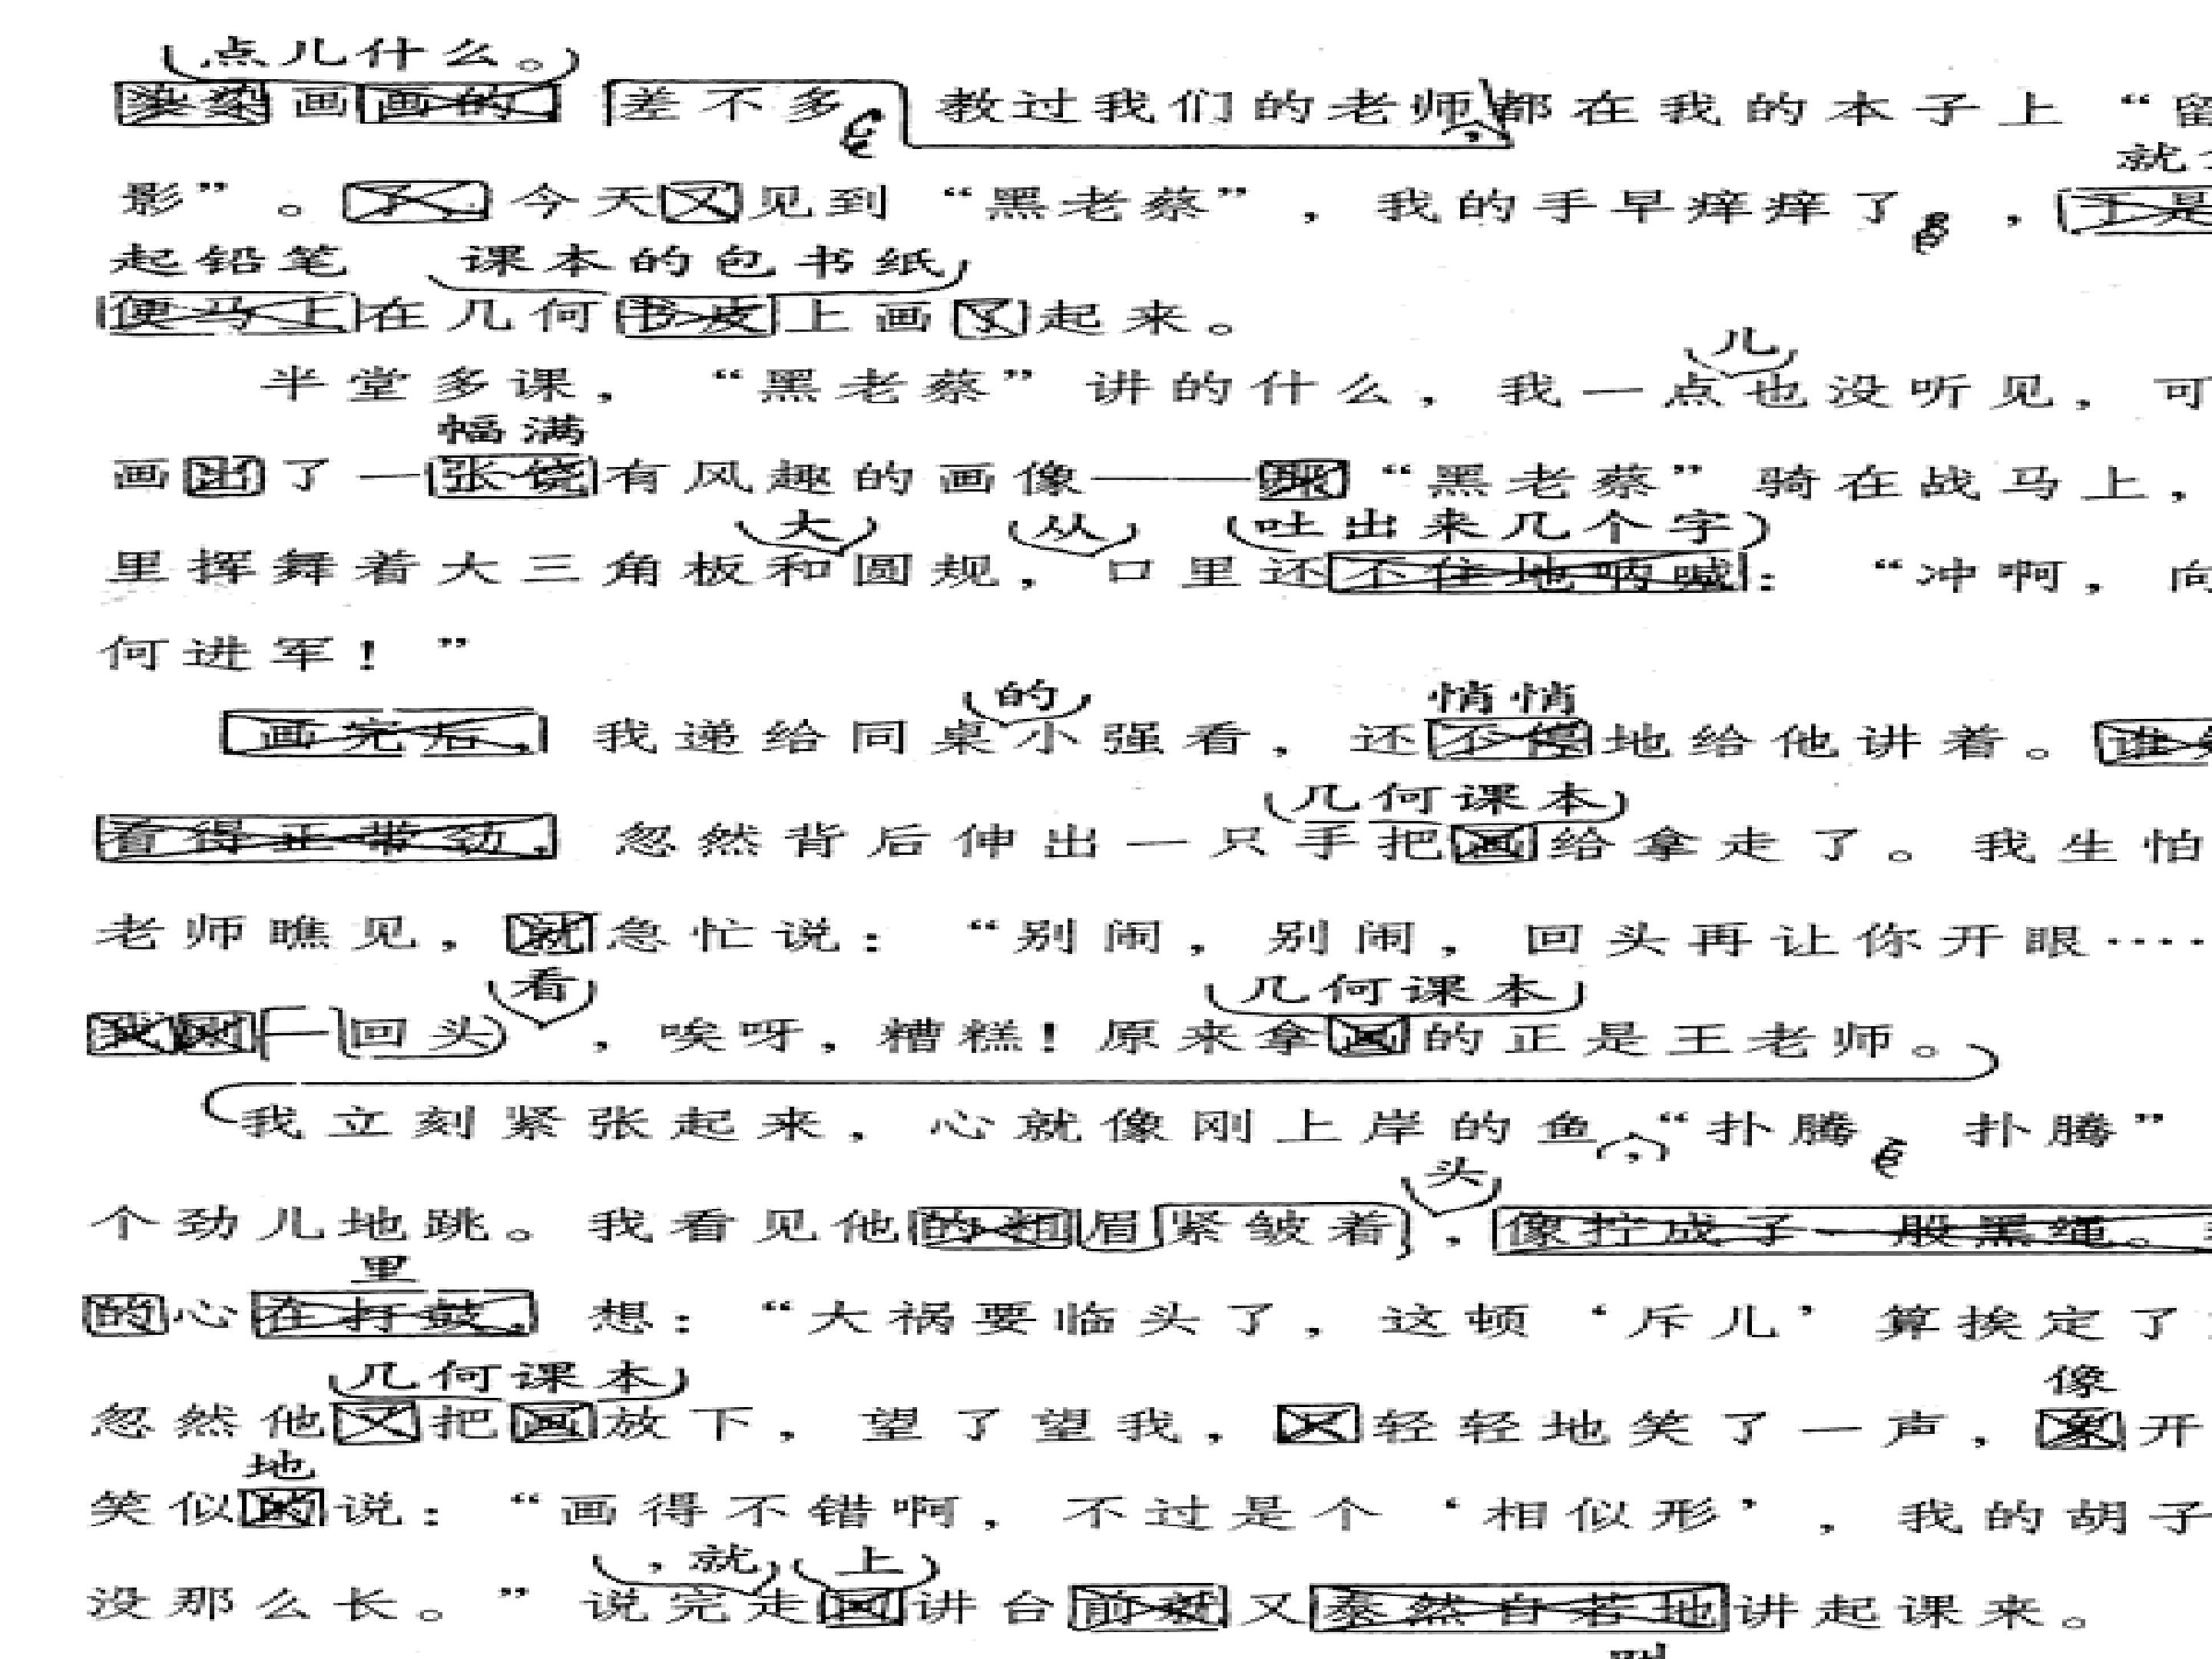 点儿什么。
染染画画的，差不多 教过我们的老师都在我的本子上“留
就拿
影”。了，今天又见到“黑老蔡”，我的手早痒痒了，于是
起铅笔 课本的包书纸
便马上在几何书皮上画了起来。
儿
半堂多课，“黑老蔡”讲的什么，我一点也没听见，可
幅满
画出了一张饶有风趣的画像——“黑老蔡”骑在战马上，
大 从 吐出来几个字
里挥舞着大三角板和圆规，口里还不住地呐喊：“冲啊，向
何进军！”
的 悄悄
画完后，我递给同桌小强看，还不停地给他讲着。谁知
几何课本
看得正带劲，忽然背后伸出一只手把画给拿走了。我生怕
老师瞧见，就急忙说：“别闹，别闹，回头再让你开眼……
看 几何课本
我一回头，唉呀，糟糕！原来拿画的正是王老师。
我立刻紧张起来，心就像刚上岸的鱼，“扑腾 扑腾”
头
个劲儿地跳。我看见他的粗眉紧皱着，像拧成了一股黑绳。
里
的心在打鼓，想：“大祸要临头了，这顿‘斥儿’算挨定了
几何课本 像
忽然他又把画放下，望了望我，又轻轻地笑了一声，象开
地
笑似的说：“画得不错啊，不过是个‘相似形’，我的胡子
，就 上
没那么长。”说完走回讲台前就又泰然自若地讲起课来。